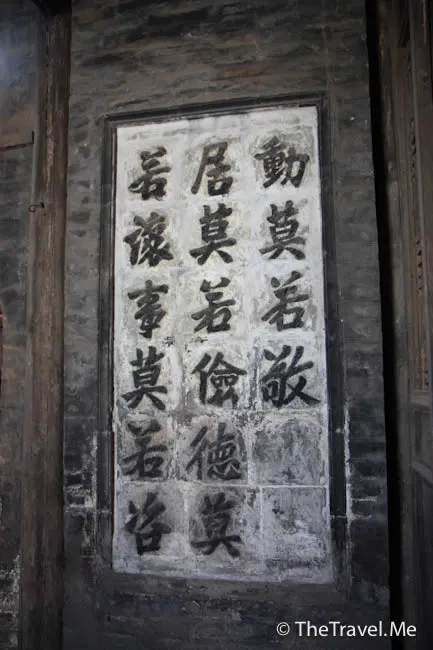 動莫若敬
居莫若儉德莫
若讓事莫若咨
© TheTravel.Me